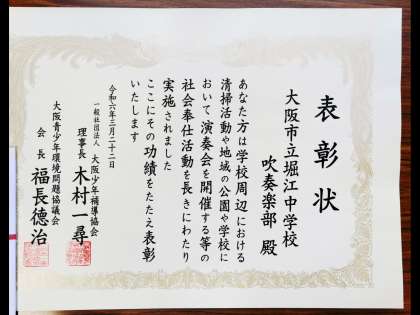 表彰状
大阪市立堀江中学校
吹奏楽部 殿
あなた方は学校周辺における
清掃活動や地域の公園や学校に
おいて演奏会を開催する等の
社会奉仕活動を長きにわたり
実施されました
ここにその功績をたたえ表彰
いたします
令和六年三月二十二日
一般社団法人 大阪少年補導協会
理事長 木村一尋
大阪青少年環境問題協議会
会長 福長徳治